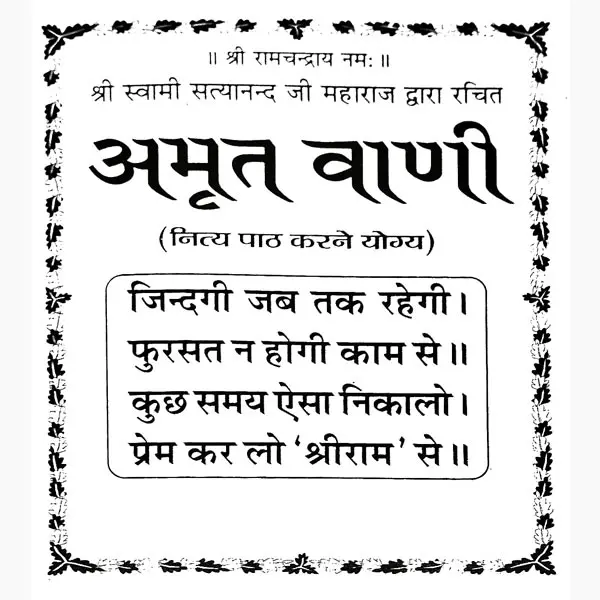 ॥ श्री रामचन्द्राय नमः ॥
श्री स्वामी सत्यानन्द जी महाराज द्वारा रचित
अमृत वाणी
(नित्य पाठ करने योग्य)
जिन्दगी जब तक रहेगी।
फुरसत न होगी काम से॥
कुछ समय ऐसा निकालो।
प्रेम कर लो ‘श्रीराम’ से॥